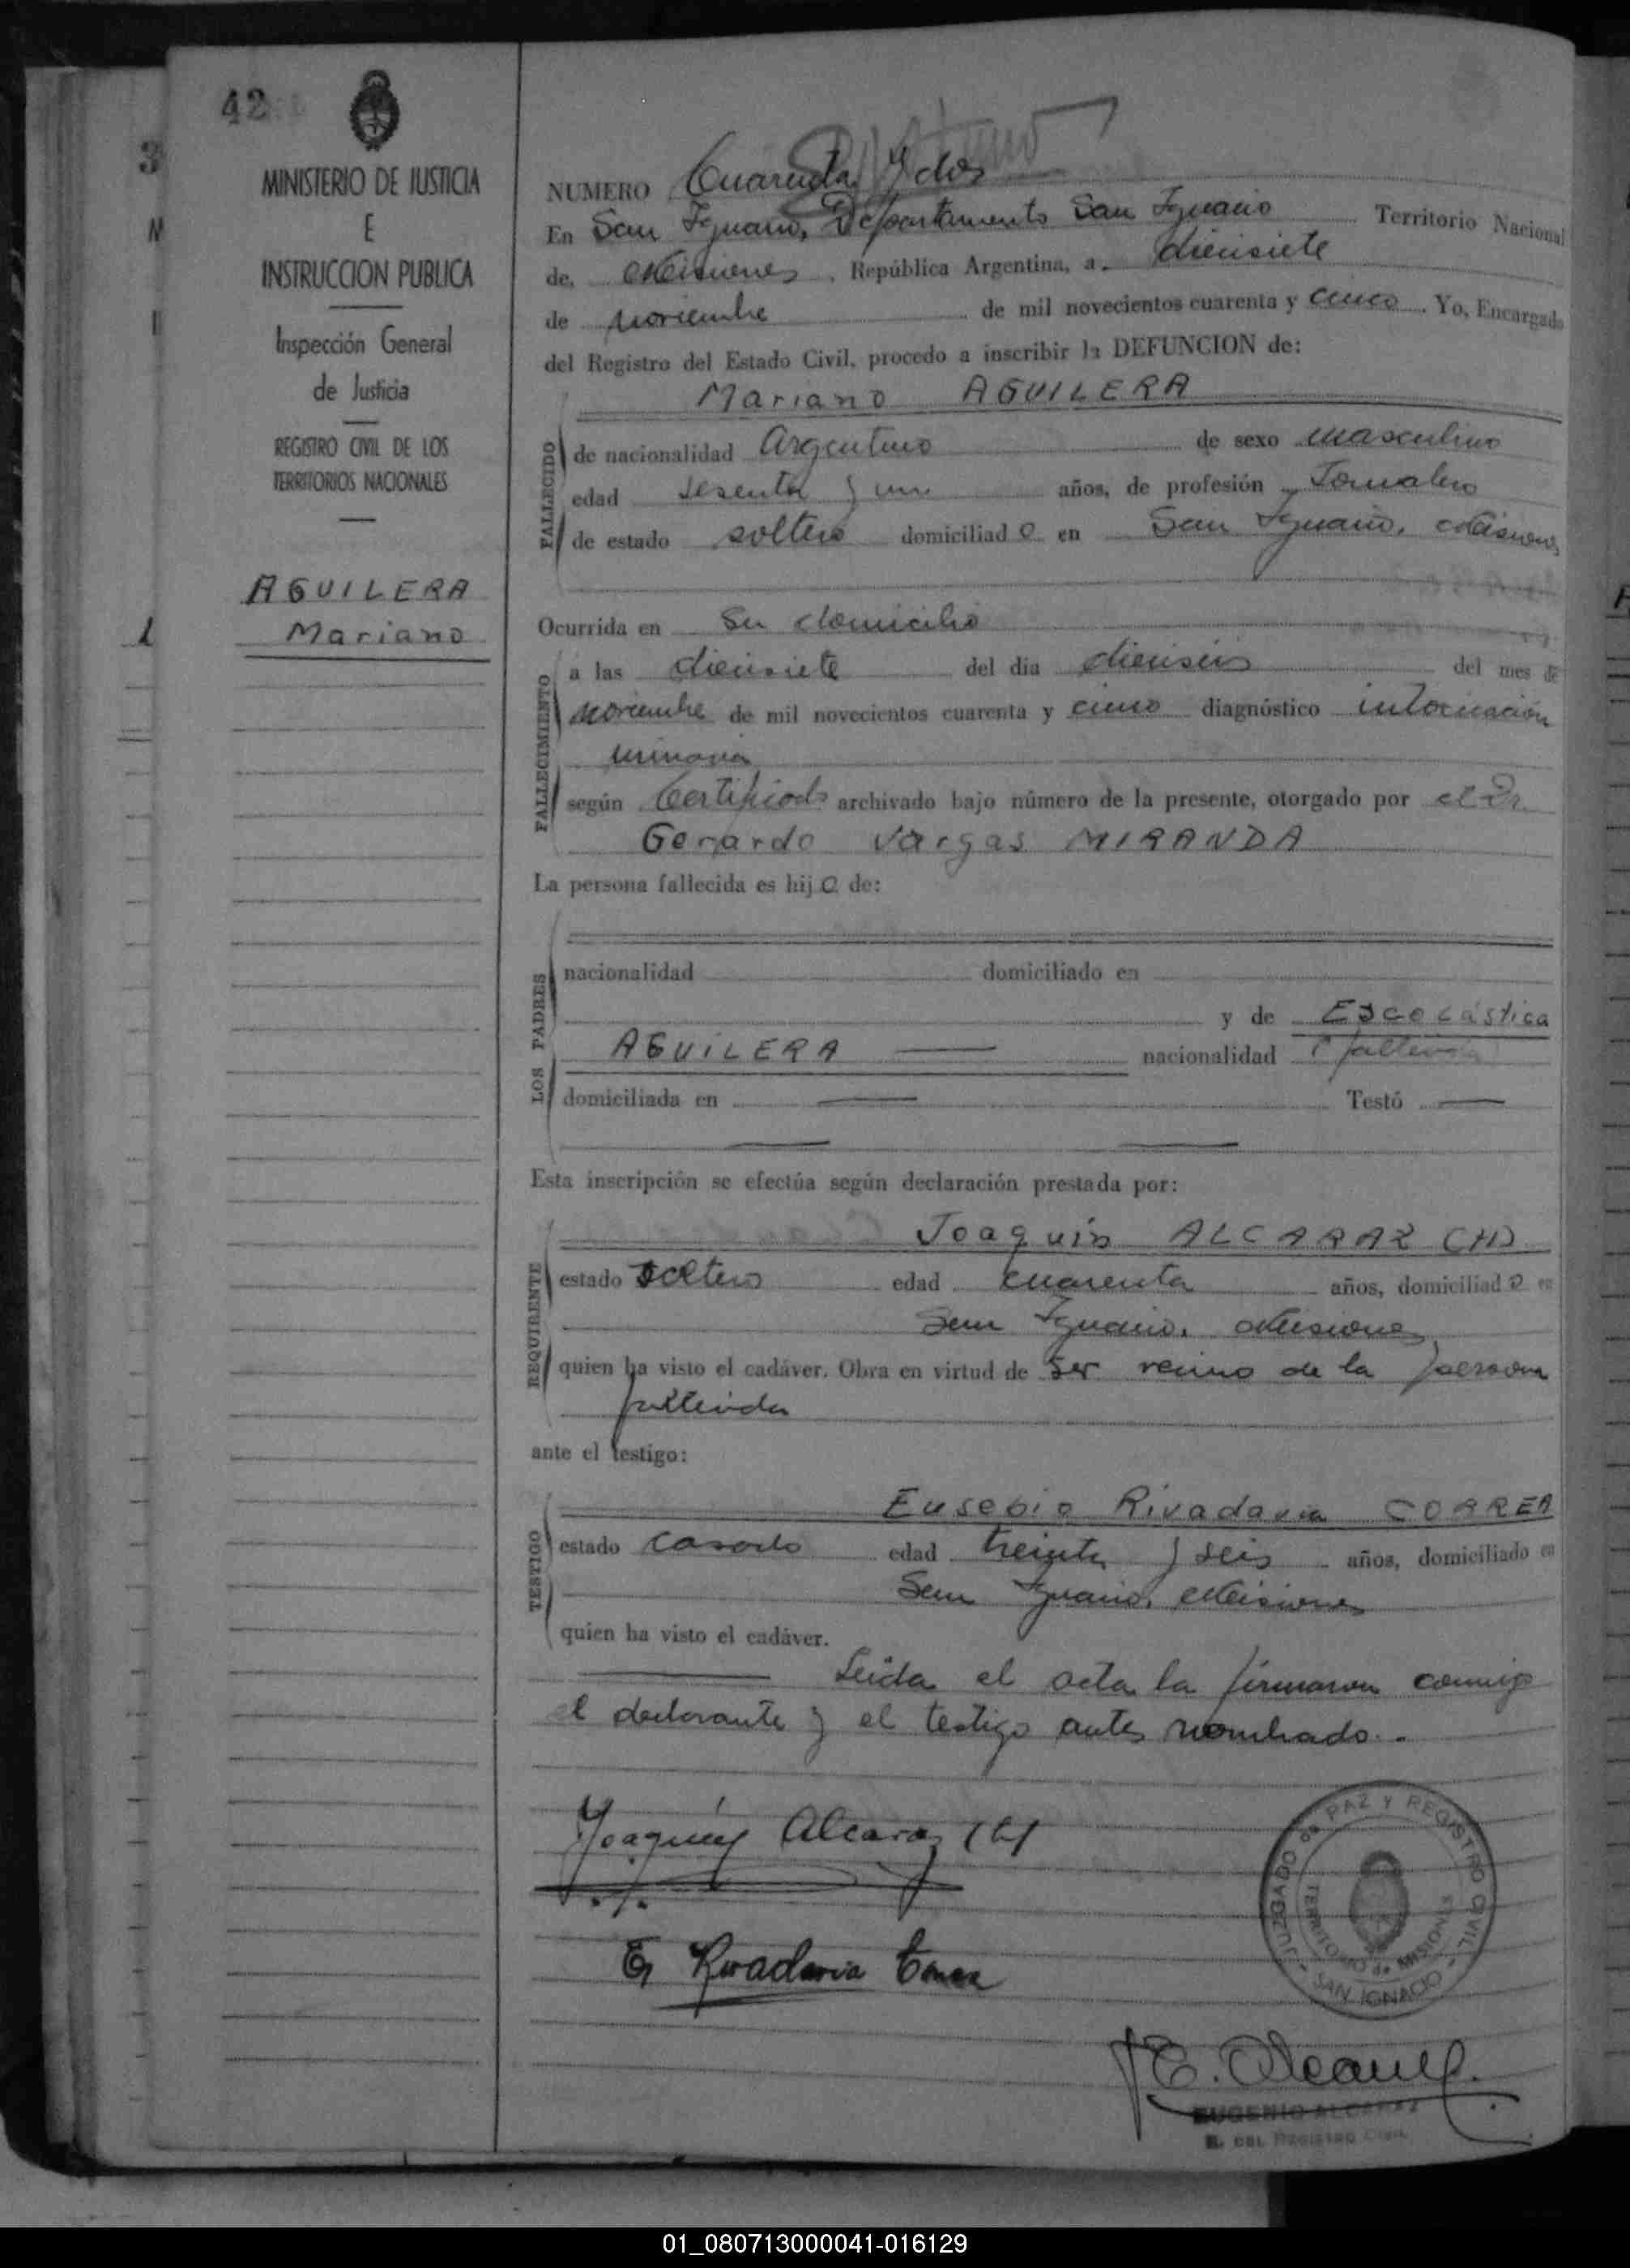 42
MINISTERIO DE JUSTICIA
E
INSTRUCCION PUBLICA
Inspección General
de Justicia
REGISTRO CIVIL DE LOS
TERRITORIOS NACIONALES
AGUILERA
Mariano
NUMERO Cuarenta y dos
En San Ignacio, Departamento San Ignacio Territorio Nacional
de, Misiones, República Argentina, a. diecisiete
de noviembre de mil novecientos cuarenta y cinco. Yo, Encargado
del Registro del Estado Civil, procedo a inscribir la DEFUNCION de:
Mariano AGUILERA
FALLECIDO
de nacionalidad Argentino de sexo masculino
edad sesenta y un años, de profesión Jornalero
de estado soltero domiciliad o en San Ignacio, Misiones
Ocurrida en Su domicilio
FALLECIMIENTO
a las diecisiete del dia dieciseis del mes de
noviembre de mil novecientos cuarenta y cinco diagnóstico intoxicación
urinaria
según Certificado archivado bajo número de la presente, otorgado por el Dr.
Gerardo Vargas MIRANDA
La persona fallecida es hij o de:
LOS PADRES
nacionalidad domiciliado en
y de Escolástica
AGUILERA nacionalidad fallecida
domiciliada en Testó
Esta inscripción se efectúa según declaración prestada por:
REQUIRENTE
Joaquín ALCARAZ (H)
estado soltero edad cuarenta años, domiciliad o en
San Ignacio, Misiones
quien ha visto el cadáver. Obra en virtud de ser vecino de la persona
fallecida
ante el testigo:
TESTIGO
Eusebio Rivadavia CORREA
estado casado edad treinta y seis años, domiciliado en
San Ignacio, Misiones
quien ha visto el cadáver.
Leida el acta la firmaron conmigo
el declarante y el testigo antes nombrado.
Joaquín Alcaraz (h)
E Rivadavia Correa
JUZGADO de PAZ Y REGISTRO CIVIL
TERRITORIO de MISIONES
SAN IGNACIO
E. Alcaraz
EUGENIO ALCARAZ
E. DEL REGISTRO CIVIL
01_080713000041-016129